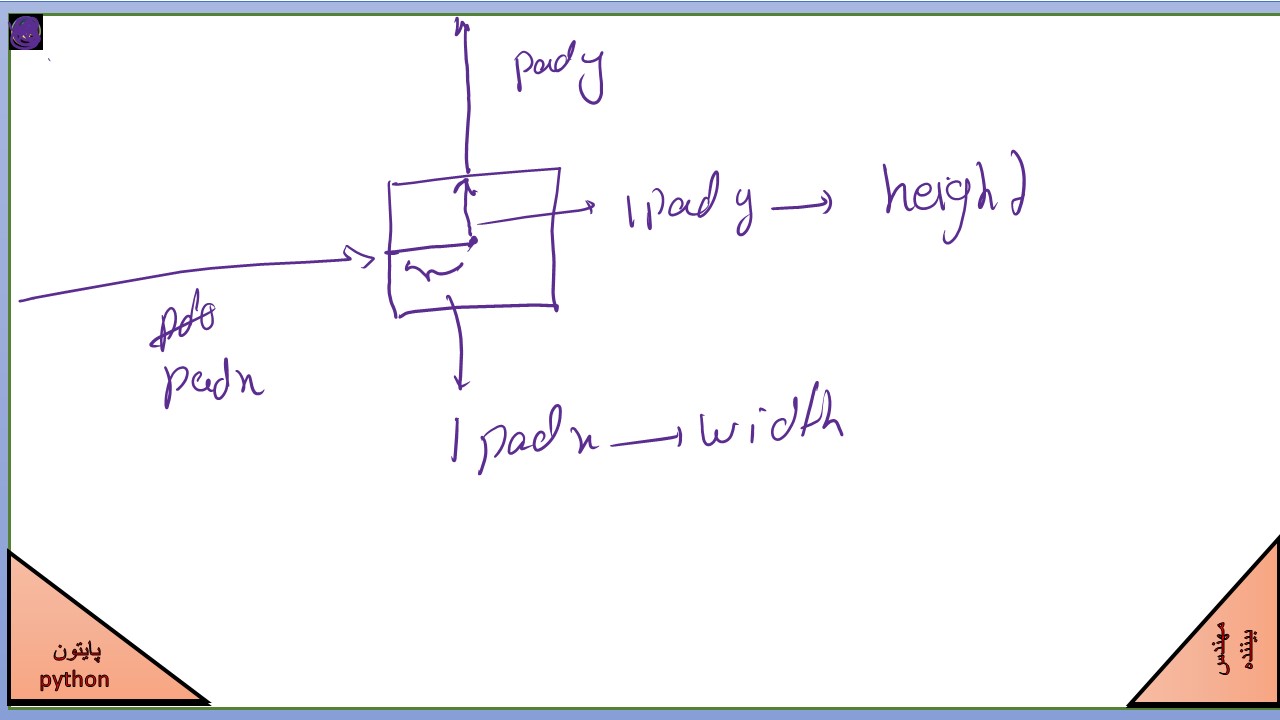 pady
ipady → height
padx
ipadx → width
پایتون
python
مهندس
بیننده